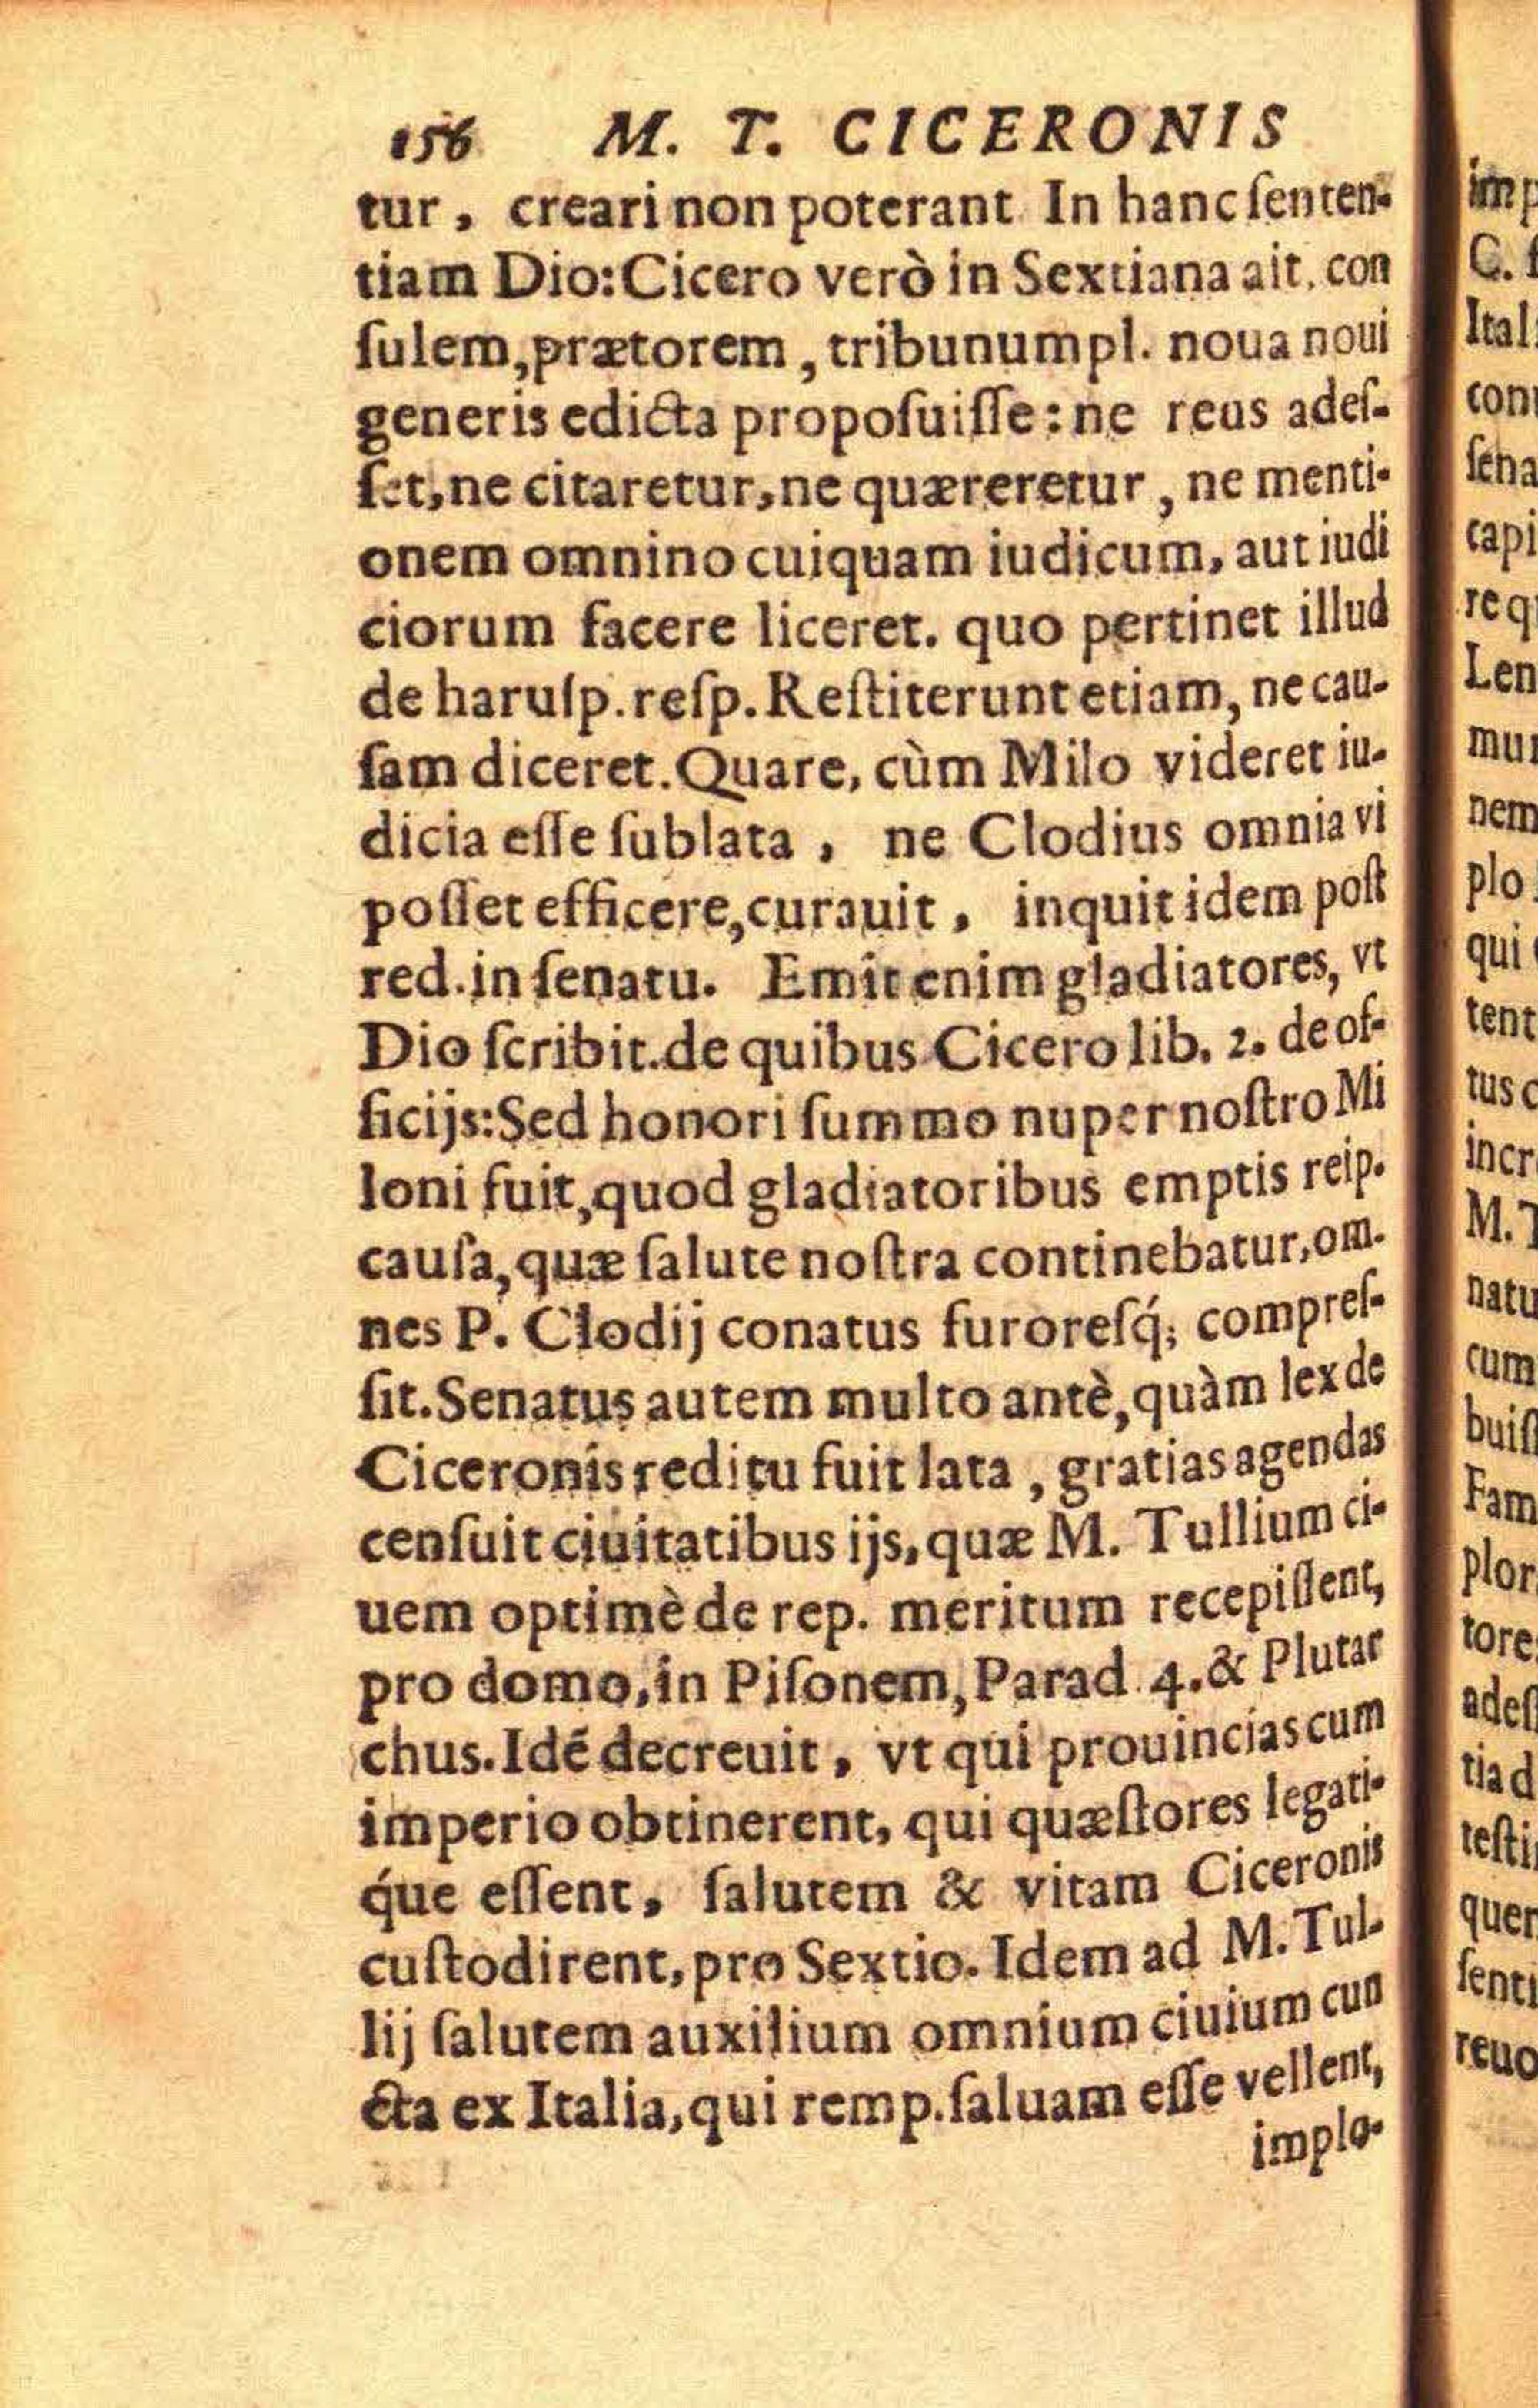 156 M. T. CICERONIS
tur, creari non poterant In hanc ſenten-
tiam Dio: Cicero verò in Sextiana ait, con
ſulem, prætorem, tribunum pl. noua noui
generis edicta propoſuiſſe: ne reus adeſ-
ſet, ne citaretur, ne quæreretur, ne menti-
onem omnino cuiquam iudicum, aut iudi
ciorum facere liceret. quo pertinet illud
de haruſp. reſp. Reſtiterunt etiam, ne cau-
ſam diceret. Quare, cùm Milo videret iu-
dicia eſſe ſublata, ne Clodius omnia vi
poſſet efficere, curauit, inquit idem poſt
red. in ſenatu. Emit enim gladiatores, vt
Dio ſcribit. de quibus Cicero lib. 2. de of-
ficijs: Sed honori ſummo nuper noſtro Mi
loni fuit, quod gladiatoribus emptis reip.
cauſa, quæ ſalute noſtra continebatur, om-
nes P. Clodij conatus furoreſq́; compreſ-
ſit. Senatus autem multo antè, quàm lex de
Ciceronis reditu fuit lata, gratias agendas
cenſuit ciuitatibus ijs, quæ M. Tullium ci-
uem optimè de rep. meritum recepiſſent,
pro domo, in Piſonem, Parad. 4. & Plutar
chus. Idẽ decreuit, vt qui prouincias cum
imperio obtinerent, qui quæſtores legati-
q́ue eſſent, ſalutem & vitam Ciceronis
cuſtodirent, pro Sextio. Idem ad M. Tul-
lij ſalutem auxilium omnium ciuium cun
cta ex Italia, qui remp. ſaluam eſſe vellent,
implo-
imp
C.
Ital
con
ſena
capi
re q
Len
mu
nem
plo
qui
tent
tus c
incr
M. T
natu
cum
buiſſ
Fam
plor
tore
adeſ
tia d
teſti
quer
ſenti
reuo